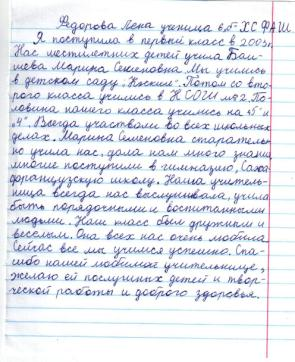 Федорова Лена ученица 6 "б" ХС ФАШ.
Я поступила в первый класс в 2003г.
Нас шестилетних детей учила Баи-
шева Марина Семеновна. Мы учились
в детском саду „Кэскил". Потом со вто-
рого класса учились в НСОШ №2. По-
ловина нашего класса учились на "5" и
"4". Всегда участвовали во всех школьных
делах. Марина Семеновна старатель-
но учила нас, дала нам много знаний
многие поступили в гимназию, Саха-
французскую школу. Наша учитель-
ница всегда нас выслушивала, учила
быть порядочными и воспитанными
людьми. Наш класс был дружным и
веселым. Она всех нас очень любила
Сейчас все мы учимся успешно. Спа-
сибо нашей любимой учительнице,
желаю ей послушных детей и твор-
ческой работы и доброго здоровья.